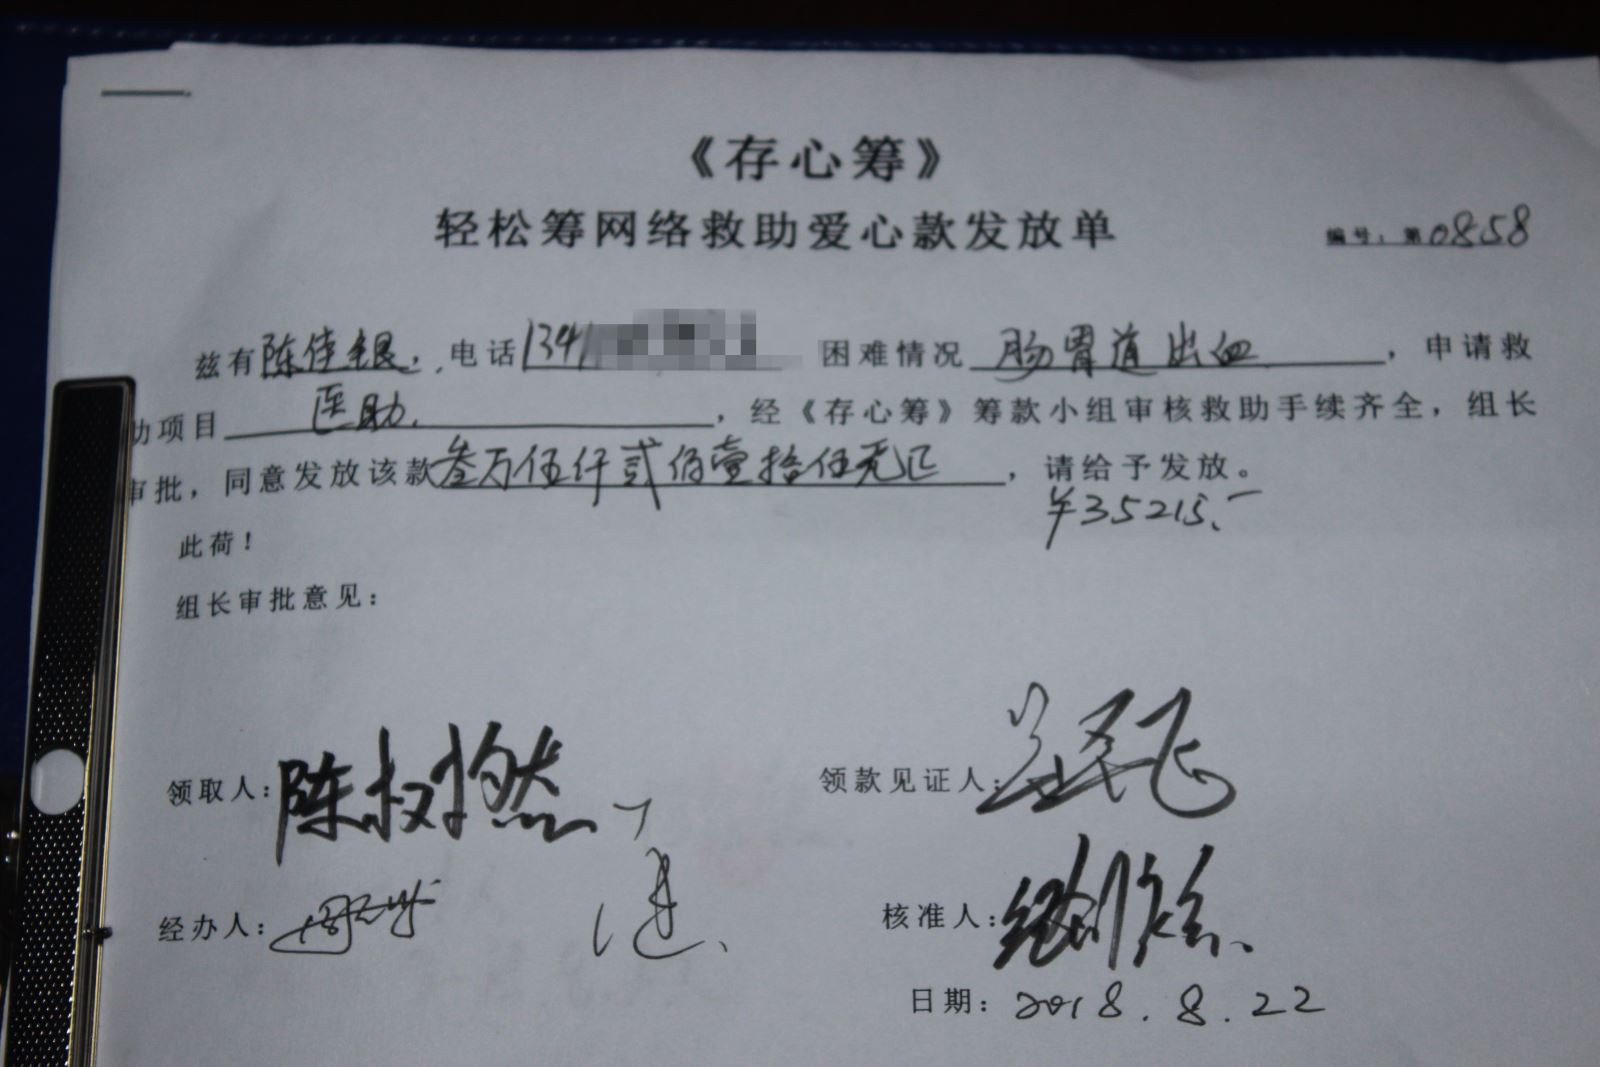 《存心筹》
轻松筹网络救助爱心款发放单
编号：第0858
兹有陈佳银，电话134 困难情况肠胃道出血，申请救
助项目医助，经《存心筹》筹款小组审核救助手续齐全，组长
审批，同意发放该款叁万伍仟贰佰壹拾伍元正，请给予发放。
￥35215.-
此荷！
组长审批意见：
领取人：陈树燃
领款见证人：
经办人：
核准人：
日期：2018.8.22